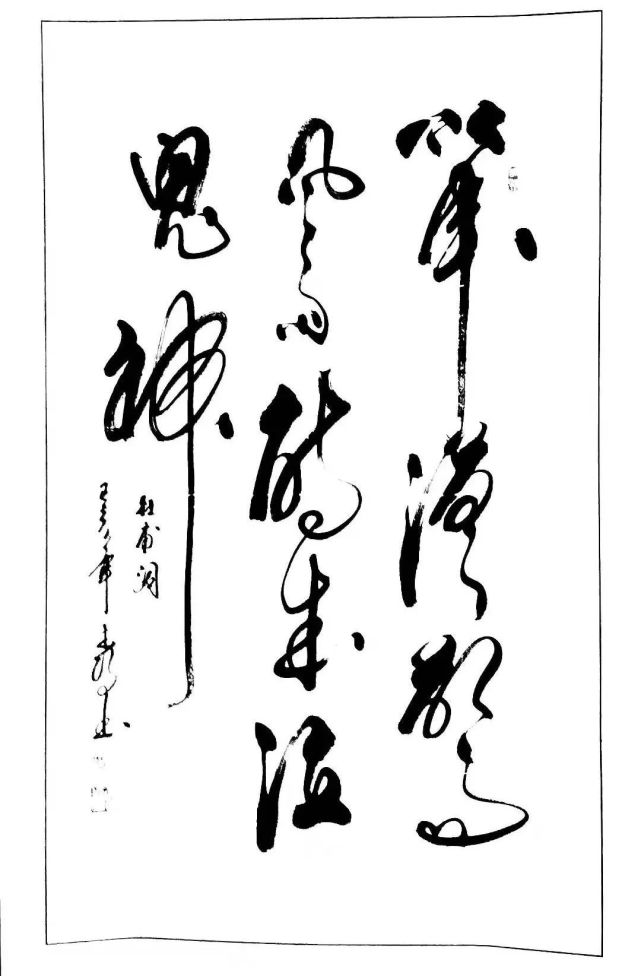 筆落驚
風雨詩成泣
鬼神
杜甫